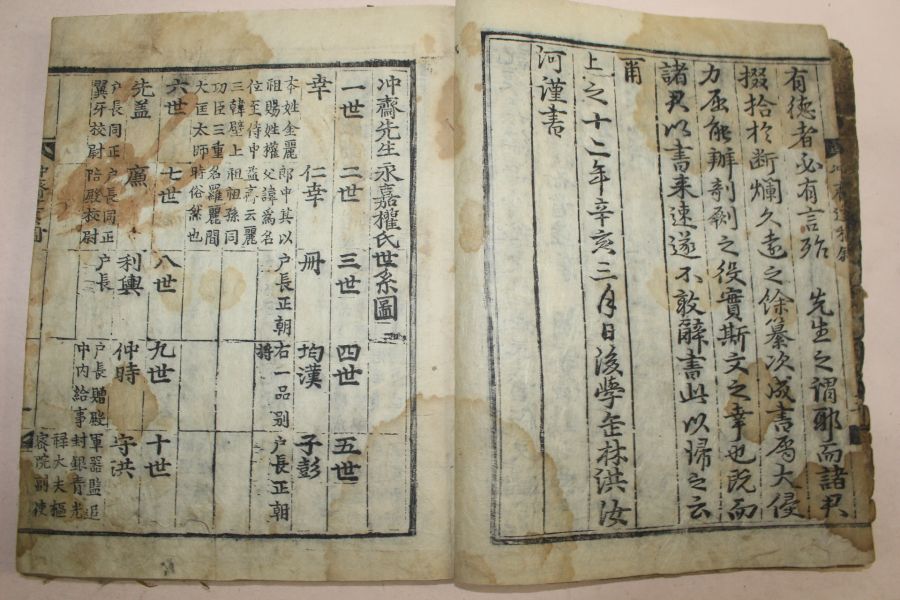 有德者必有言殆　先生之謂耶而諸君
掇拾於斷爛久遠之餘纂次成書屬大侵
力屈能辦剞劂之役實斯文之幸也既而
諸君以書来速遂不敢辭書此以歸之云
甫
上之十二年辛亥三月日後學缶林洪汝
河謹書
冲齋先生永嘉權氏世系圖
一世
二世
三世
四世
五世
幸
本姓金麗
祖賜姓權
位至侍中
三韓壁上
功臣三重
大匡太師
仁幸
郎中其以
父諱爲名
益齋云麗
祖祖孫同
名羅麗間
時俗然也
冊
户長正朝
均漢
右一品别
將
子彭
户長正朝
六世
七世
八世
九世
十世
先盖
户長同正
翼牙校尉
廉
户長同正
陪殿校尉
利輿
户長
仲時
户長贈殿
中内給事
守洪
軍器監追
封銀青光
禄大夫樞
密院副使